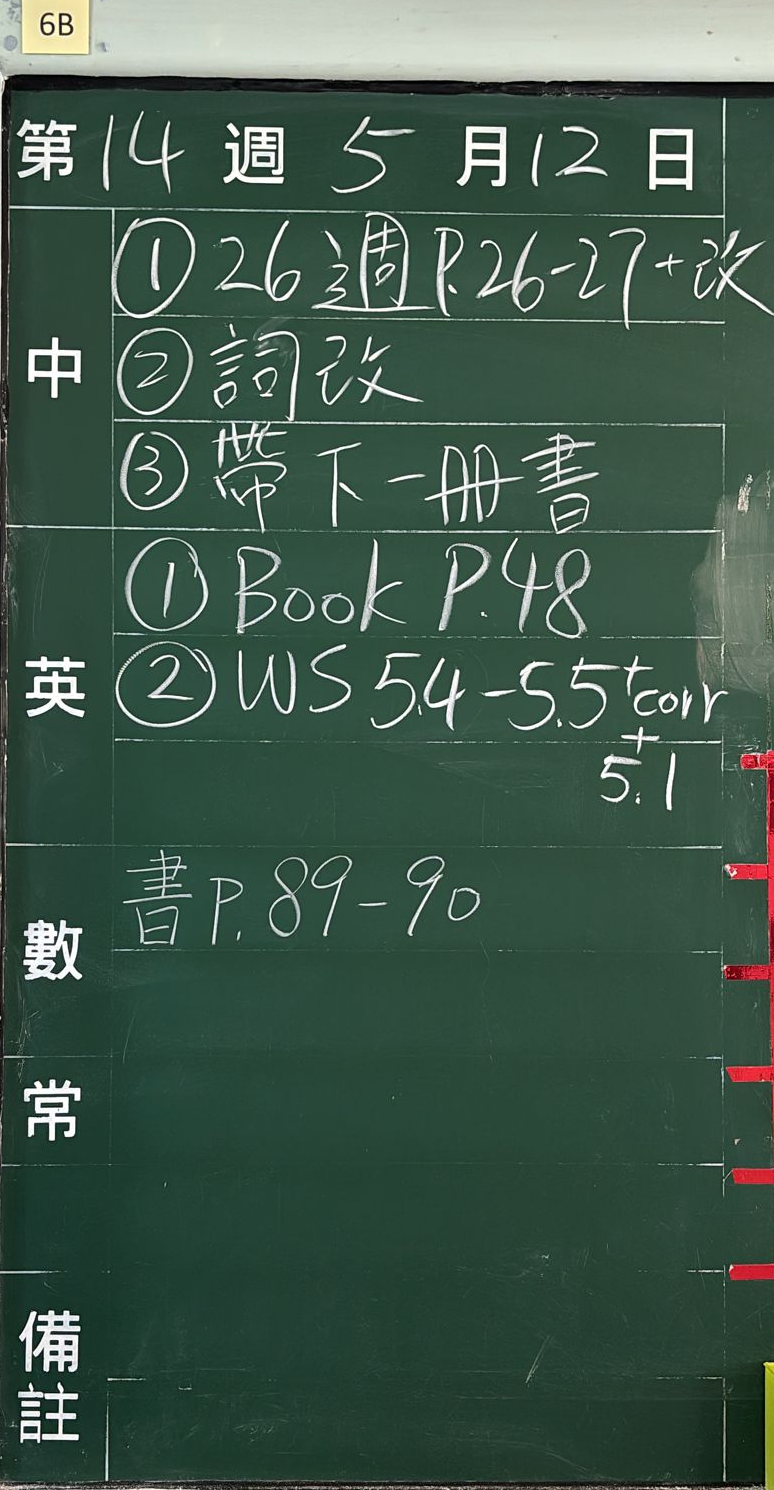 6B
第14週 5月12日
中
① 26週 P.26-27+改
② 詞改
③ 帶下一冊書
英
① Book P.48
② WS 5.4-5.5+corr
+
5.1
數
書P.89-90
常
備註